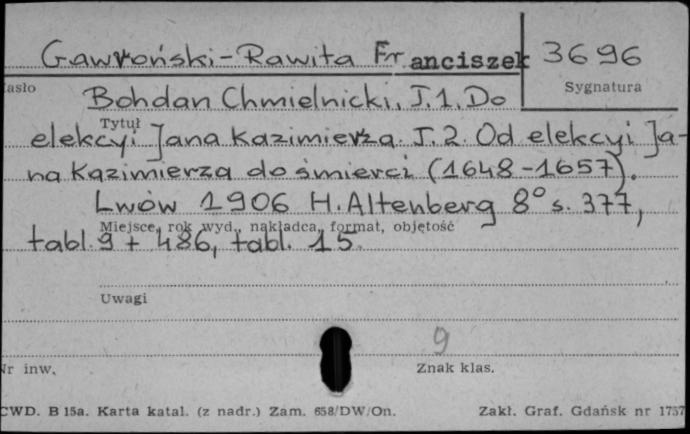 Gawroński-Rawita Franciszek 3696
asło Sygnatura
Bohdan Chmielnicki. T.1. Do
Tytuł
elekcyi Jana Kazimierza. T.2. Od elekcyi Ja-
na Kazimierza do śmierci (1648-1657).
Lwów 1906 H. Altenberg 8° s. 377,
Miejsce, rok wyd., nakładca, format, objętość
tabl. 9 + 486, tabl. 15.
Uwagi
9
Nr inw. Znak klas.
CWD. B 15a. Karta katal. (z nadr.) Zam. 658/DW/On. Zakł. Graf. Gdańsk nr 1757